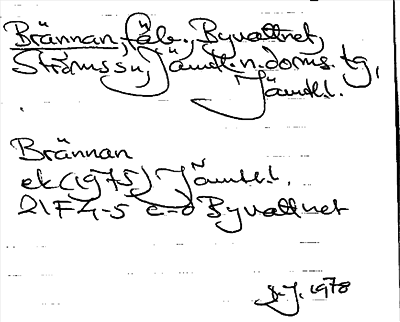 Brännan, fäb., Byvattnet,
Ströms sn, Jämtl. n. doms. tg,
Jämtl. l.
Brännan
ek (1975) Jämtl. l.
21F 4-5 c-d Byvattnet
1978